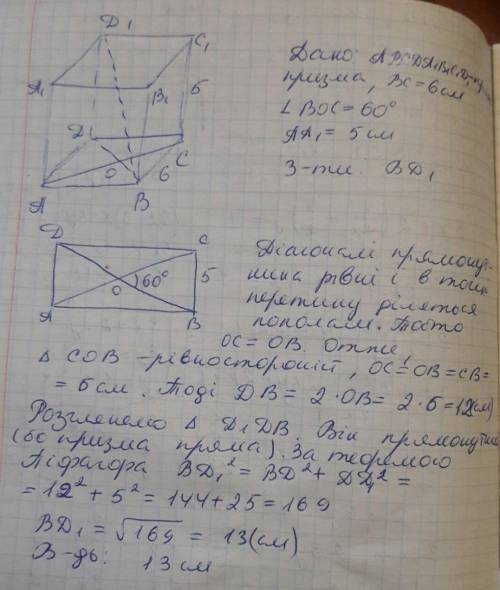 D1 C1
A1 B1 5
Дано ABCDA1B1C1D1
призма, BC = 6 см
∠BOC = 60°
AA1 = 5 см
З-ти: BD1
D C
O 6
A B
D C
60° 5
O
A B
Діагоналі прямокут-
ника рівні і в точці
перетину діляться
пополам. Тобто
OC = OB. Отже,
Δ COB - рівносторонній, OC = OB = CB =
= 6 см. Тоді DB = 2 · OB = 2 · 6 = 12(см)
Розглянемо Δ D1DB. Він прямокутний
(бо призма пряма). За теремою
Піфагора BD1² = BD² + DD1² =
= 12² + 5² = 144 + 25 = 169
BD1 = √169 = 13 (см)
В-дь: 13 см